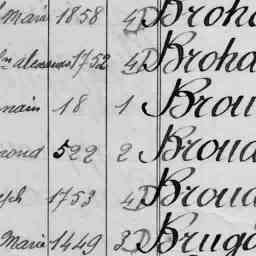 Marie 1858 4D Broha
alexandre 1752 4D Broha
main 18 1 Brou
mond 522 2 Broua
seph 1753 4D Broua
Marie 1449 3D Bruga